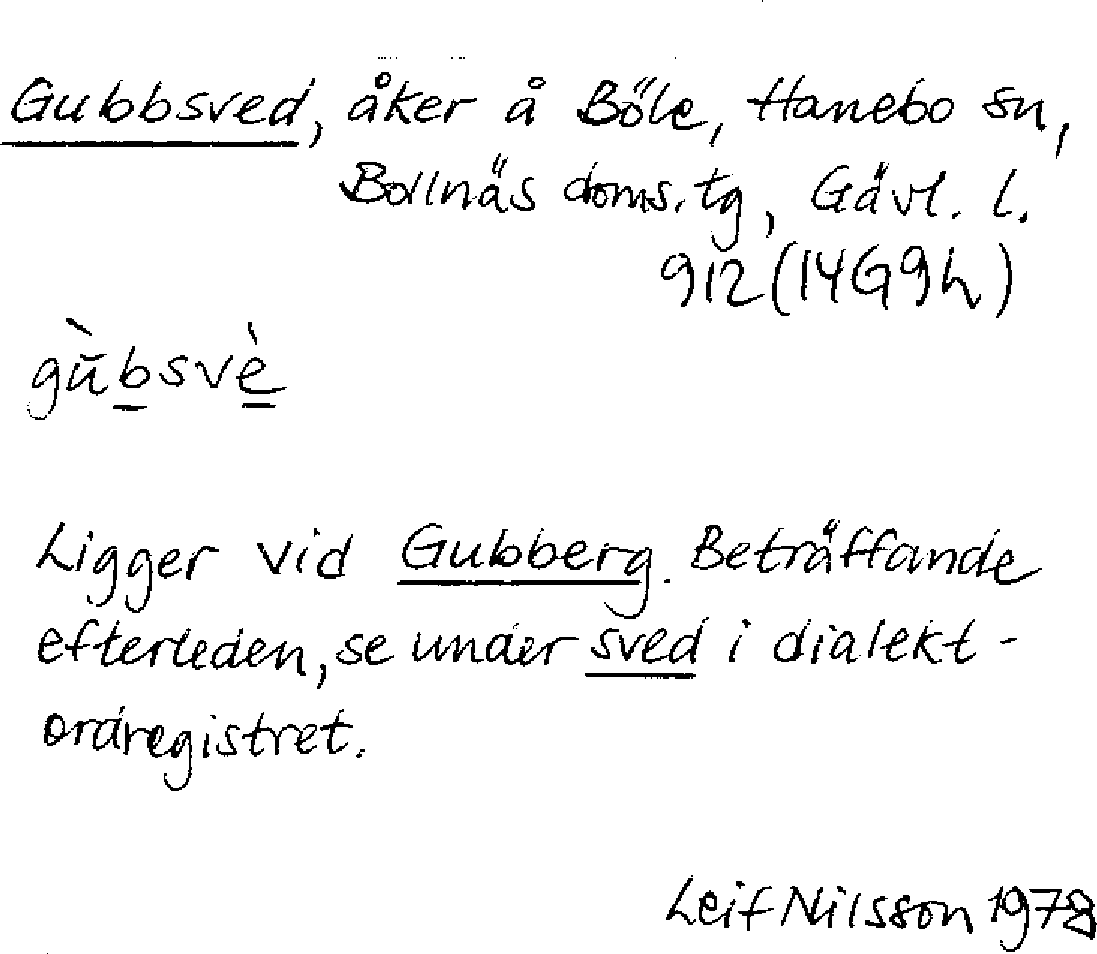 Gubbsved, åker å Böle, Hanebo sn,
Bollnäs doms.tg, Gävl. l.
912 (14G9h)
gù̄bsvè
Ligger vid Gubberg. Beträffande
efterleden, se under sved i dialekt-
ordregistret.
Leif Nilsson 1978